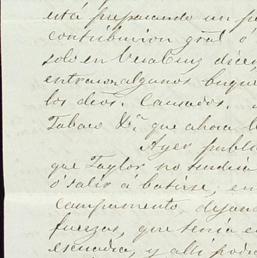 está preparando un pr
contribucion gral ó
solo en Veracruz dice
entraron, algunos buque
los dros. Causados.
Tabaco &ª que ahora l
Ayer publi
que Taylor no tendria
ó salir a batirse, en
Campamento, dejand
fuerzas, que tenia e
escuadra, y alli podr